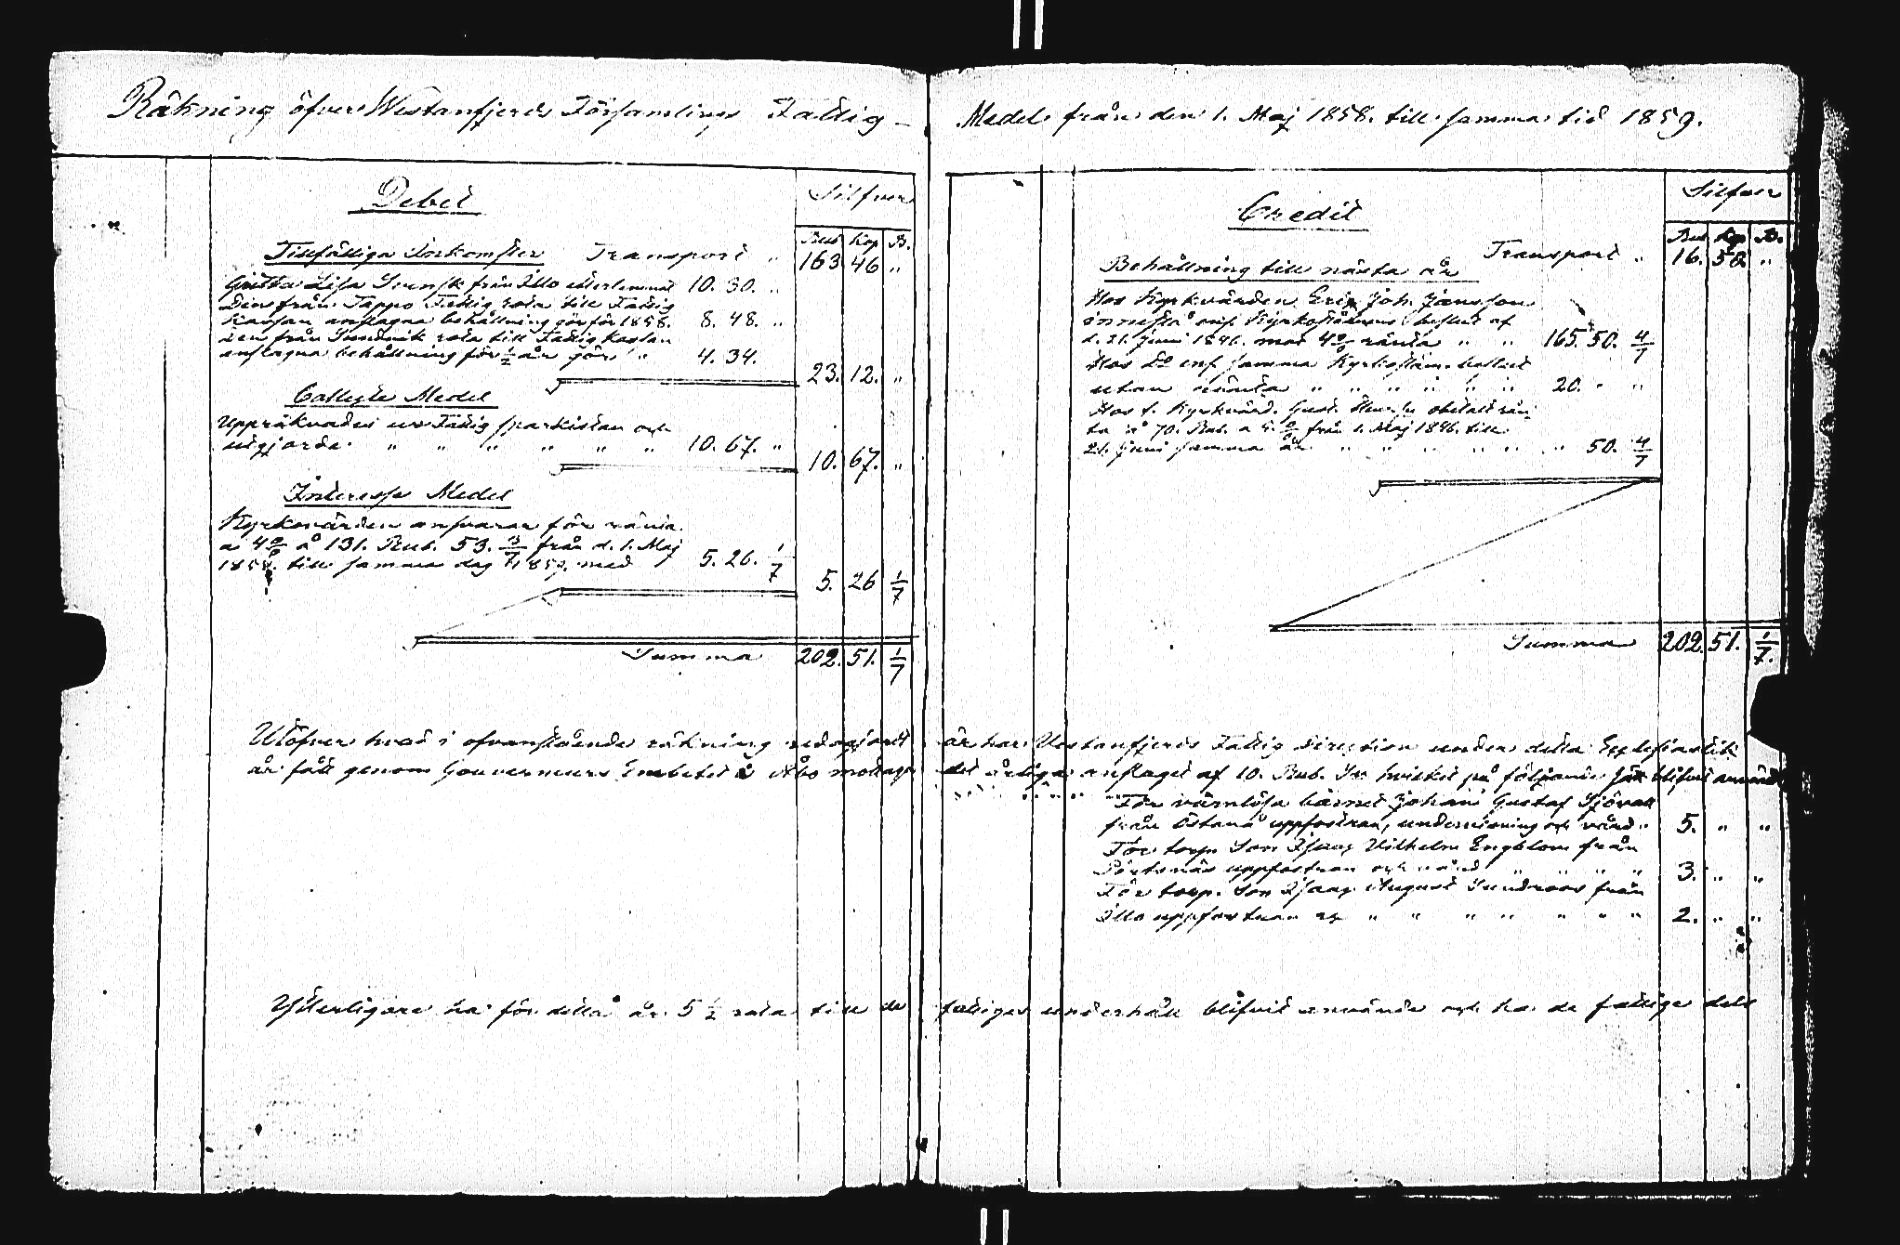 Räkning öfver Westanfjerds Församlings Fattig-
Medel från den 1. Maj 1858. till samma tid 1859.
Debet
Silfver
Rub Kop B.
Tillfälliga Inkomster Transport " 163 46 "
Gretta Lisa Svensk från Illo efterlemnat 10. 30. "
Den från Tappo Fattig rota till Fattig
Kassan anslagna behållning gör för 1858. 8. 48. "
den från Sundvik rota till Fattig Kassan
anslagna behållning för 1/2 år gör " 4. 34.
23. 12. "
Collecte Medel
Uppräknades ur Fattig sparkistan och
utgjorde " " " " " " 10. 67. "
10. 67. "
Interesse Medel
Kyrkovärden ansvarar för ränta
a 4% å 131. Rub. 53. 4/7 från d. 1. Maj
1858. till samma dag 1859, med 5. 26. 1/7
5. 26 1/7
Summa 202. 51. 1/7
Credit
Silfver
Rub Kop B.
Transport " 16. 50. "
Behållning till nästa år
Hos Kyrkvärden Erik Joh. Jansson
innestå enl. Kyrkostämmans beslut af
d. 21. Juni 1846. mot 4% ränta " " 165. 50. 4/7
Hos Do enl. samma Kyrkostäm. beslut
utan ränta " " " " " " 20. " "
Hos f. Kyrkvärd. Gust. obetald rän
ta å 70. Rub. a 4. % från 1. Maj 1846. till
21. Juni samma år " " " " " " 50. 4/7
Summa 202. 51. 1/7.
Utöfver hvad i ofvanstående räkning redogjordt är har Westanfjerds Fattig Direction under detta Ecklesiastik
år fått genom Gouverneurs Embetet i Åbo mottaga det årliga anslaget af 10. Rub. Sr hvilket på följande sätt blifvit användt
För värnlösa barnet Johan Gustaf Sjövall
från Östanå uppfostran, undervisning och vård " 5. " "
För torp. Son Isaac Vilhelm Engblom från
uppfostran och vård " " " " 3. " "
För torp. Son Isaac August Sundroos från
Illo uppfostran " " " " " " " 2. " "
Ytterligare ha för detta år 5 1/2 rota till de fattigas underhåll blifvit använde och ha de fattige dels